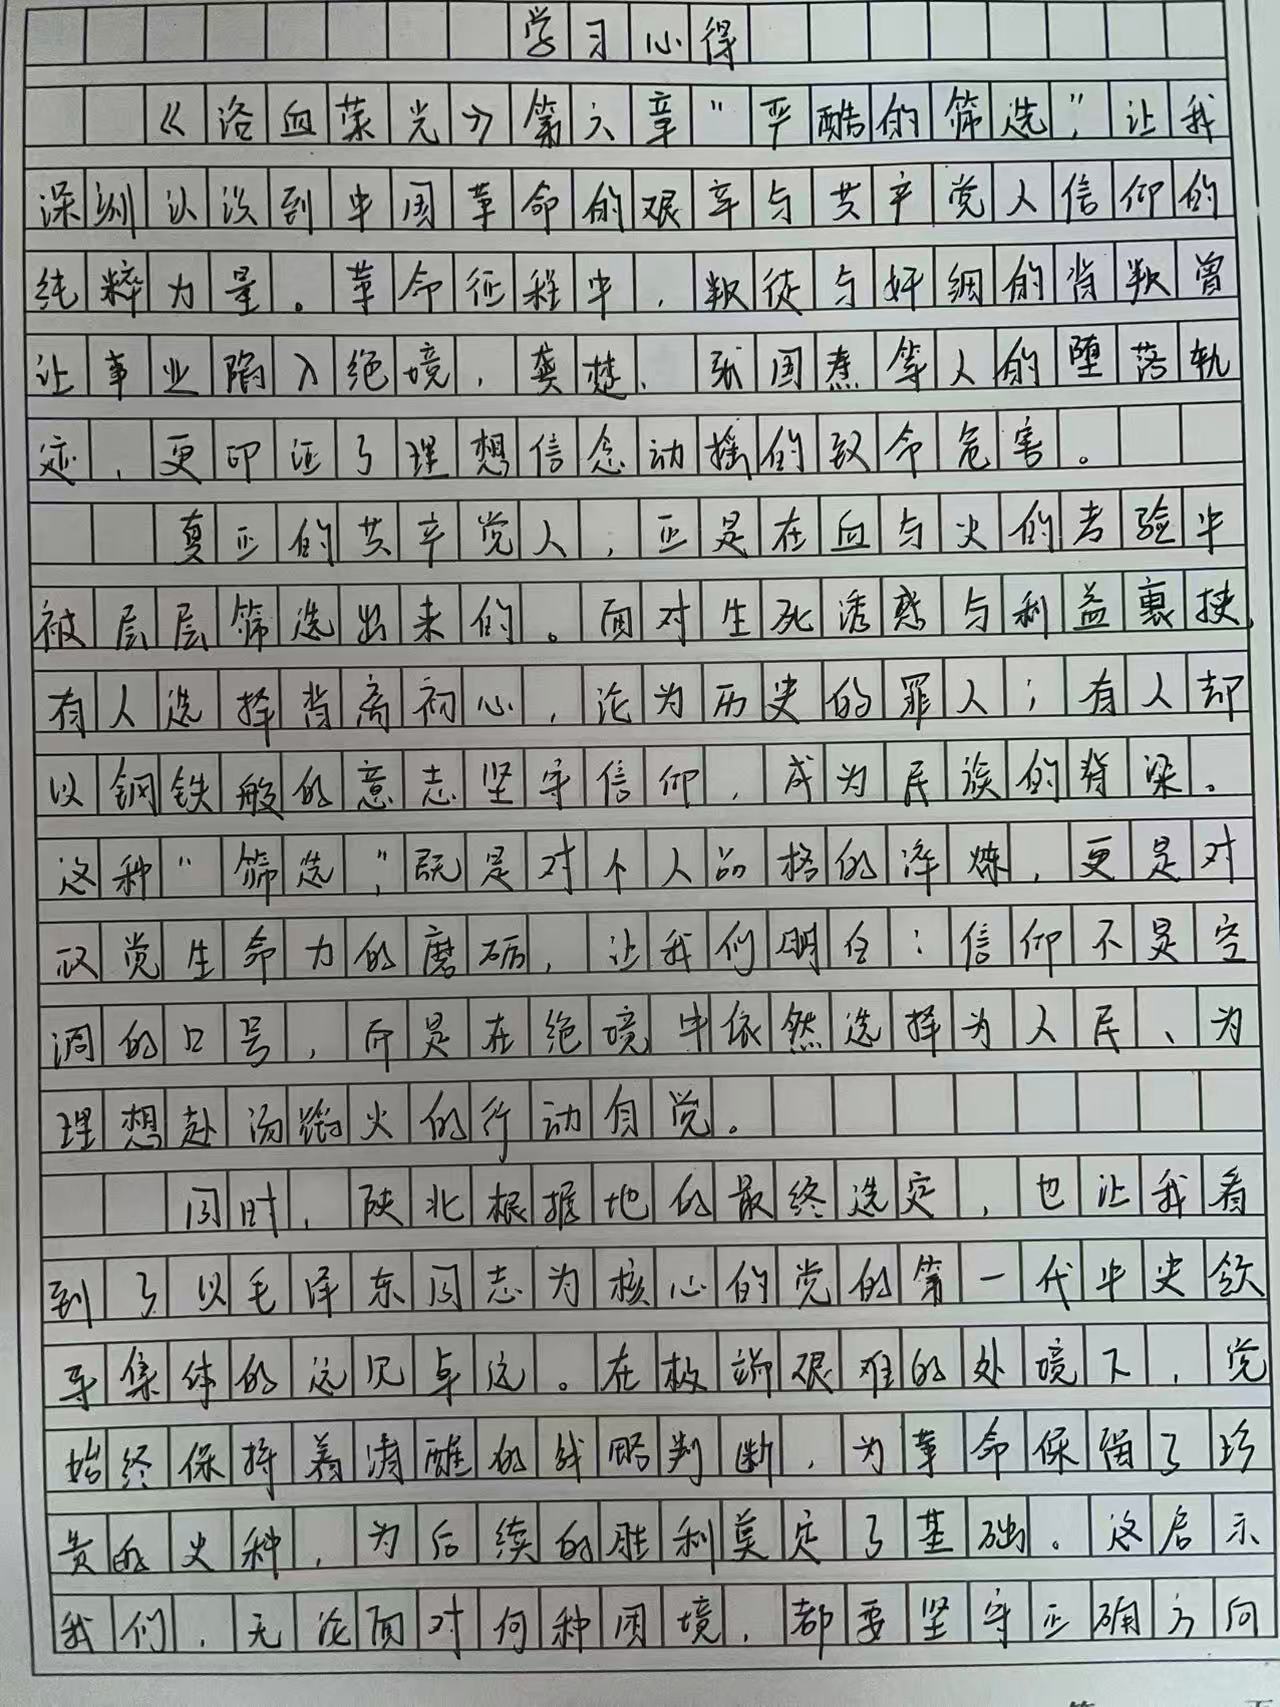 学习心得
《浴血荣光》第六章“严酷的筛选”，让我
深刻认识到中国革命的艰辛与共产党人信仰的
纯粹力量。革命征程中，叛徒与奸细的背叛曾
让事业陷入绝境，龚楚、张国焘等人的堕落轨
迹，更印证了理想信念动摇的致命危害。
真正的共产党人，正是在血与火的考验中
被层层筛选出来的。面对生死诱惑与利益裹挟，
有人选择背离初心，沦为历史的罪人；有人却
以钢铁般的意志坚守信仰，成为民族的脊梁。
这种“筛选”，既是对个人品格的淬炼，更是对
政党生命力的磨砺，让我们明白：信仰不是空
洞的口号，而是在绝境中依然选择为人民、为
理想赴汤蹈火的行动自觉。
同时，陕北根据地的最终选定，也让我看
到了以毛泽东同志为核心的党的第一代中央领
导集体的远见卓远。在极端艰难的处境下，党
始终保持着清醒的战略判断，为革命保留了珍
贵的火种，为后续的胜利奠定了基础。这启示
我们，无论面对何种困境，都要坚守正确方向